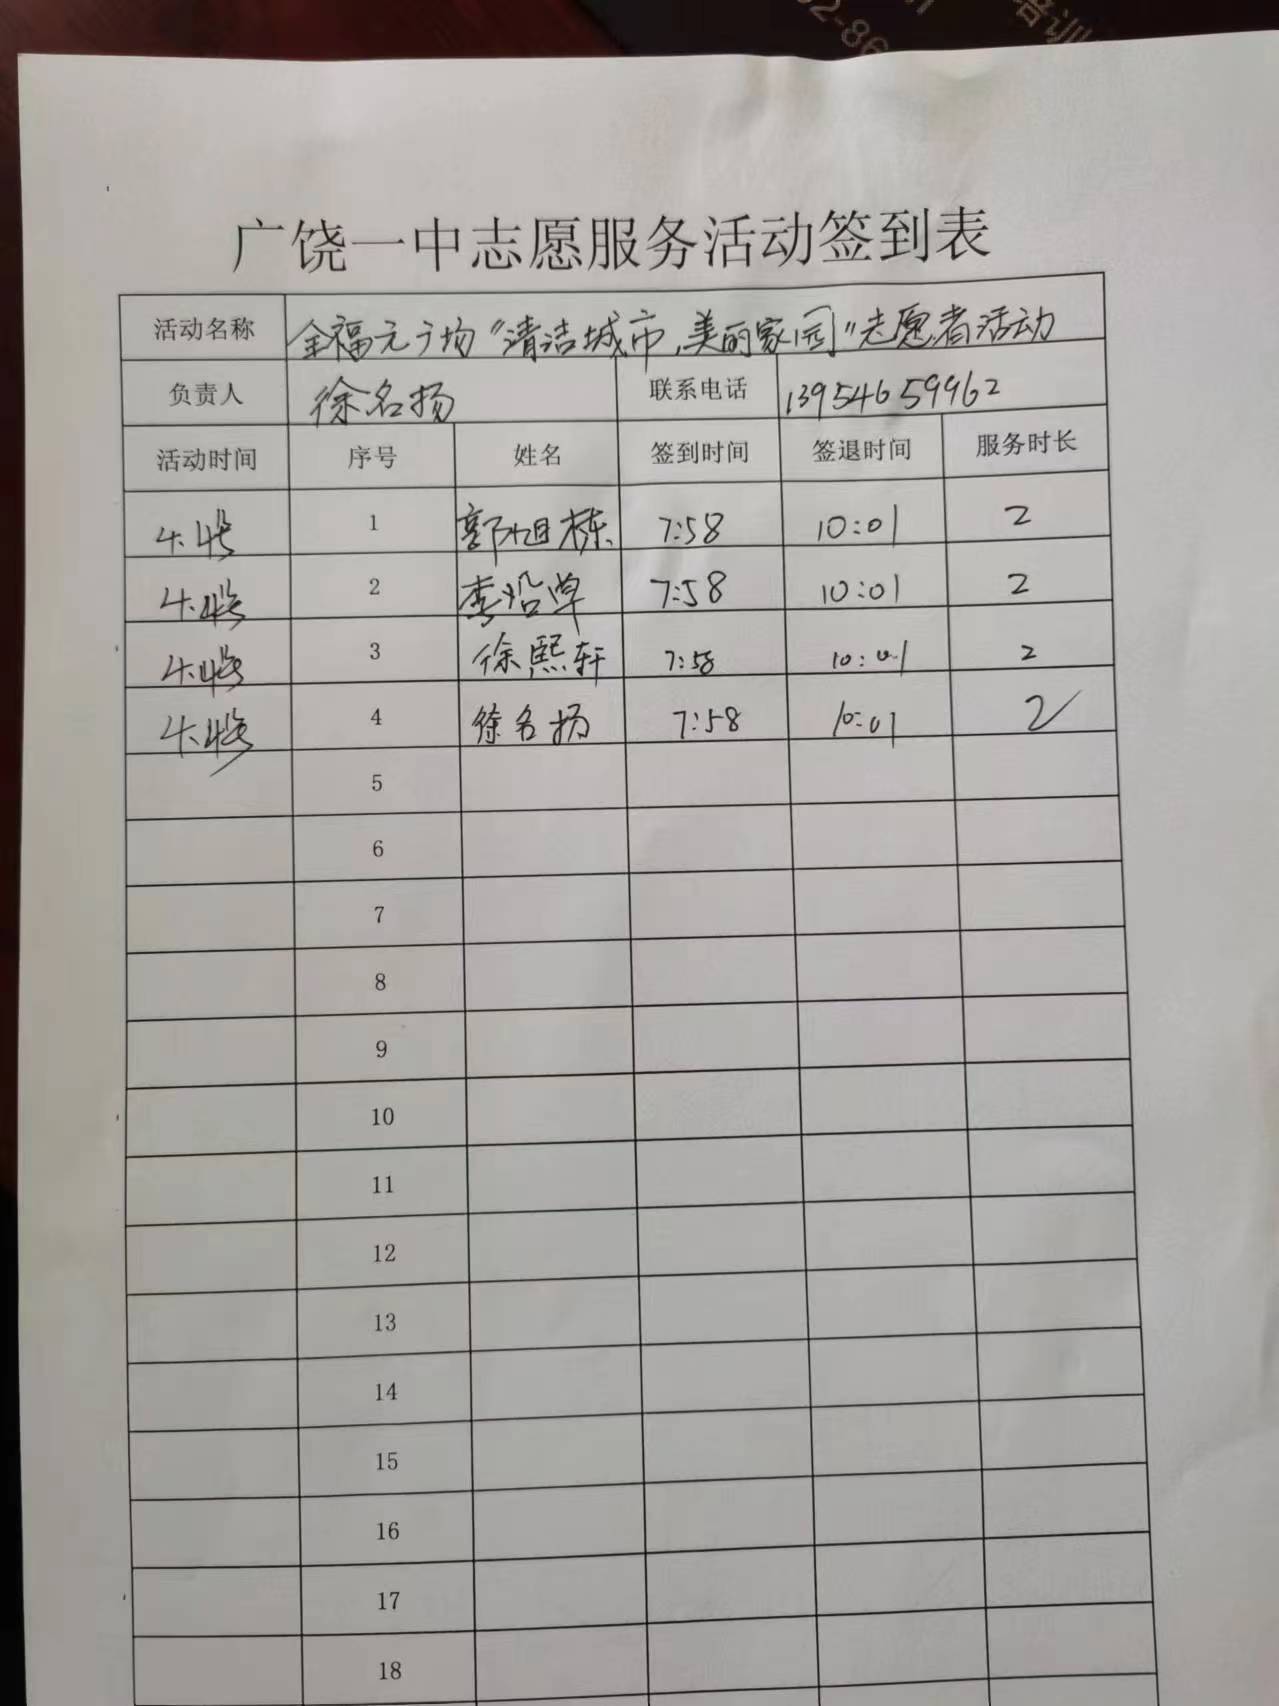 培训
02-86
广饶一中志愿服务活动签到表
活动名称 全福元广场“清洁城市,美丽家园”志愿者活动
负责人 徐名扬 联系电话 13954659962
活动时间 序号 姓名 签到时间 签退时间 服务时长
1 郭旭栋 7:58 10:01 2
2 李沿单 7:58 10:01 2
3 徐熙轩 7:58 10:01 2
4 徐名扬 7:58 10:01 2
5
6
7
8
9
10
11
12
13
14
15
16
17
18